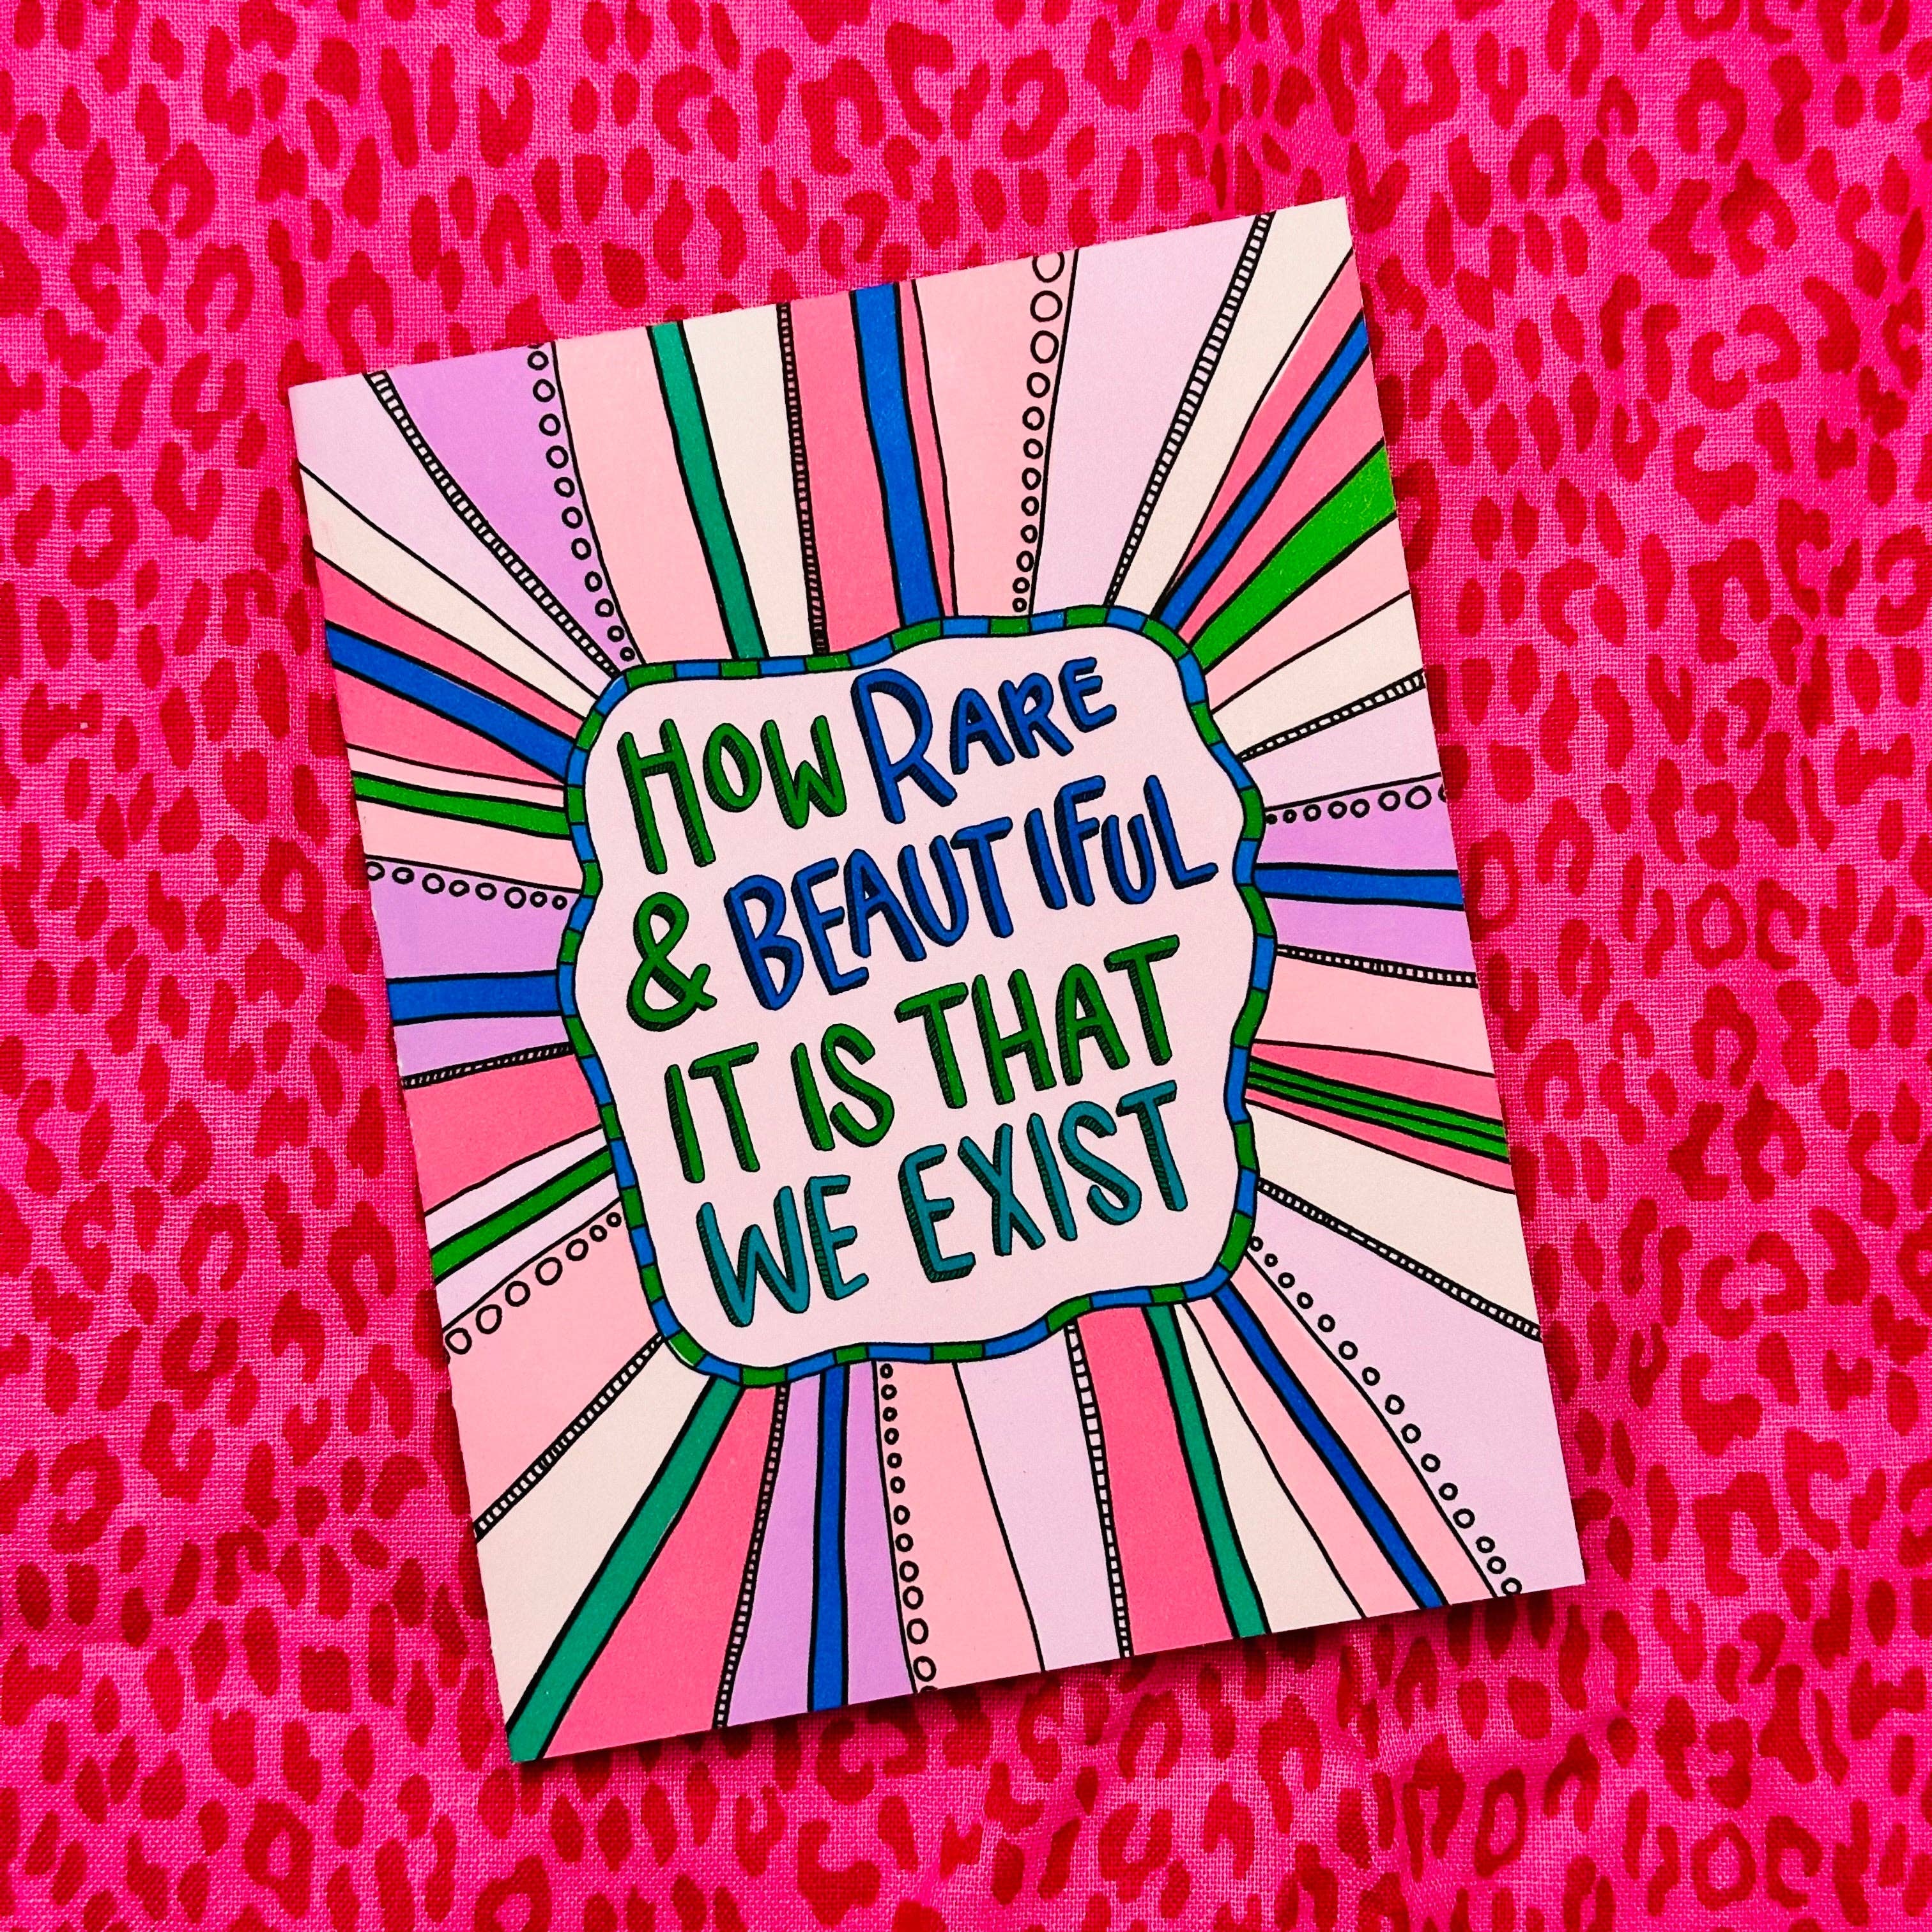 HOW RARE
& BEAUTIFUL
IT IS THAT
WE EXIST